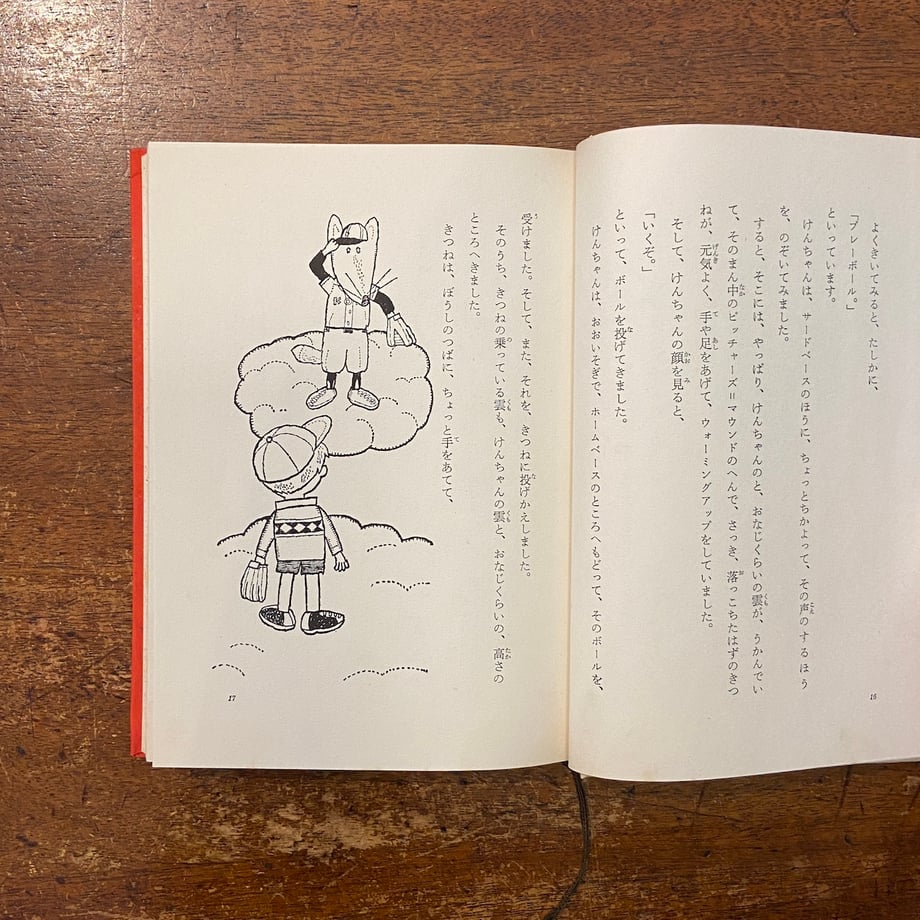 よくきいてみると、たしかに、
「プレーボール。」
といっています。
けんちゃんは、サードベースのほうに、ちょっとちかよって、その声のするほう
を、のぞいてみました。
すると、そこには、やっぱり、けんちゃんのと、おなじくらいの雲が、うかんでい
て、そのまん中のピッチャーズ=マウンドのへんで、さっき、落っこちたはずのきつ
ねが、元気よく、手や足をあげて、ウォーミングアップをしていました。
そして、けんちゃんの顔を見ると、
「いくぞ。」
といって、ボールを投げてきました。
けんちゃんは、おおいそぎで、ホームベースのところへもどって、そのボールを、
16
受けました。そして、また、それを、きつねに投げかえしました。
そのうち、きつねの乗っている雲も、けんちゃんの雲と、おなじくらいの、高さの
ところへきました。
きつねは、ぼうしのつばに、ちょっと手をあてて、
17